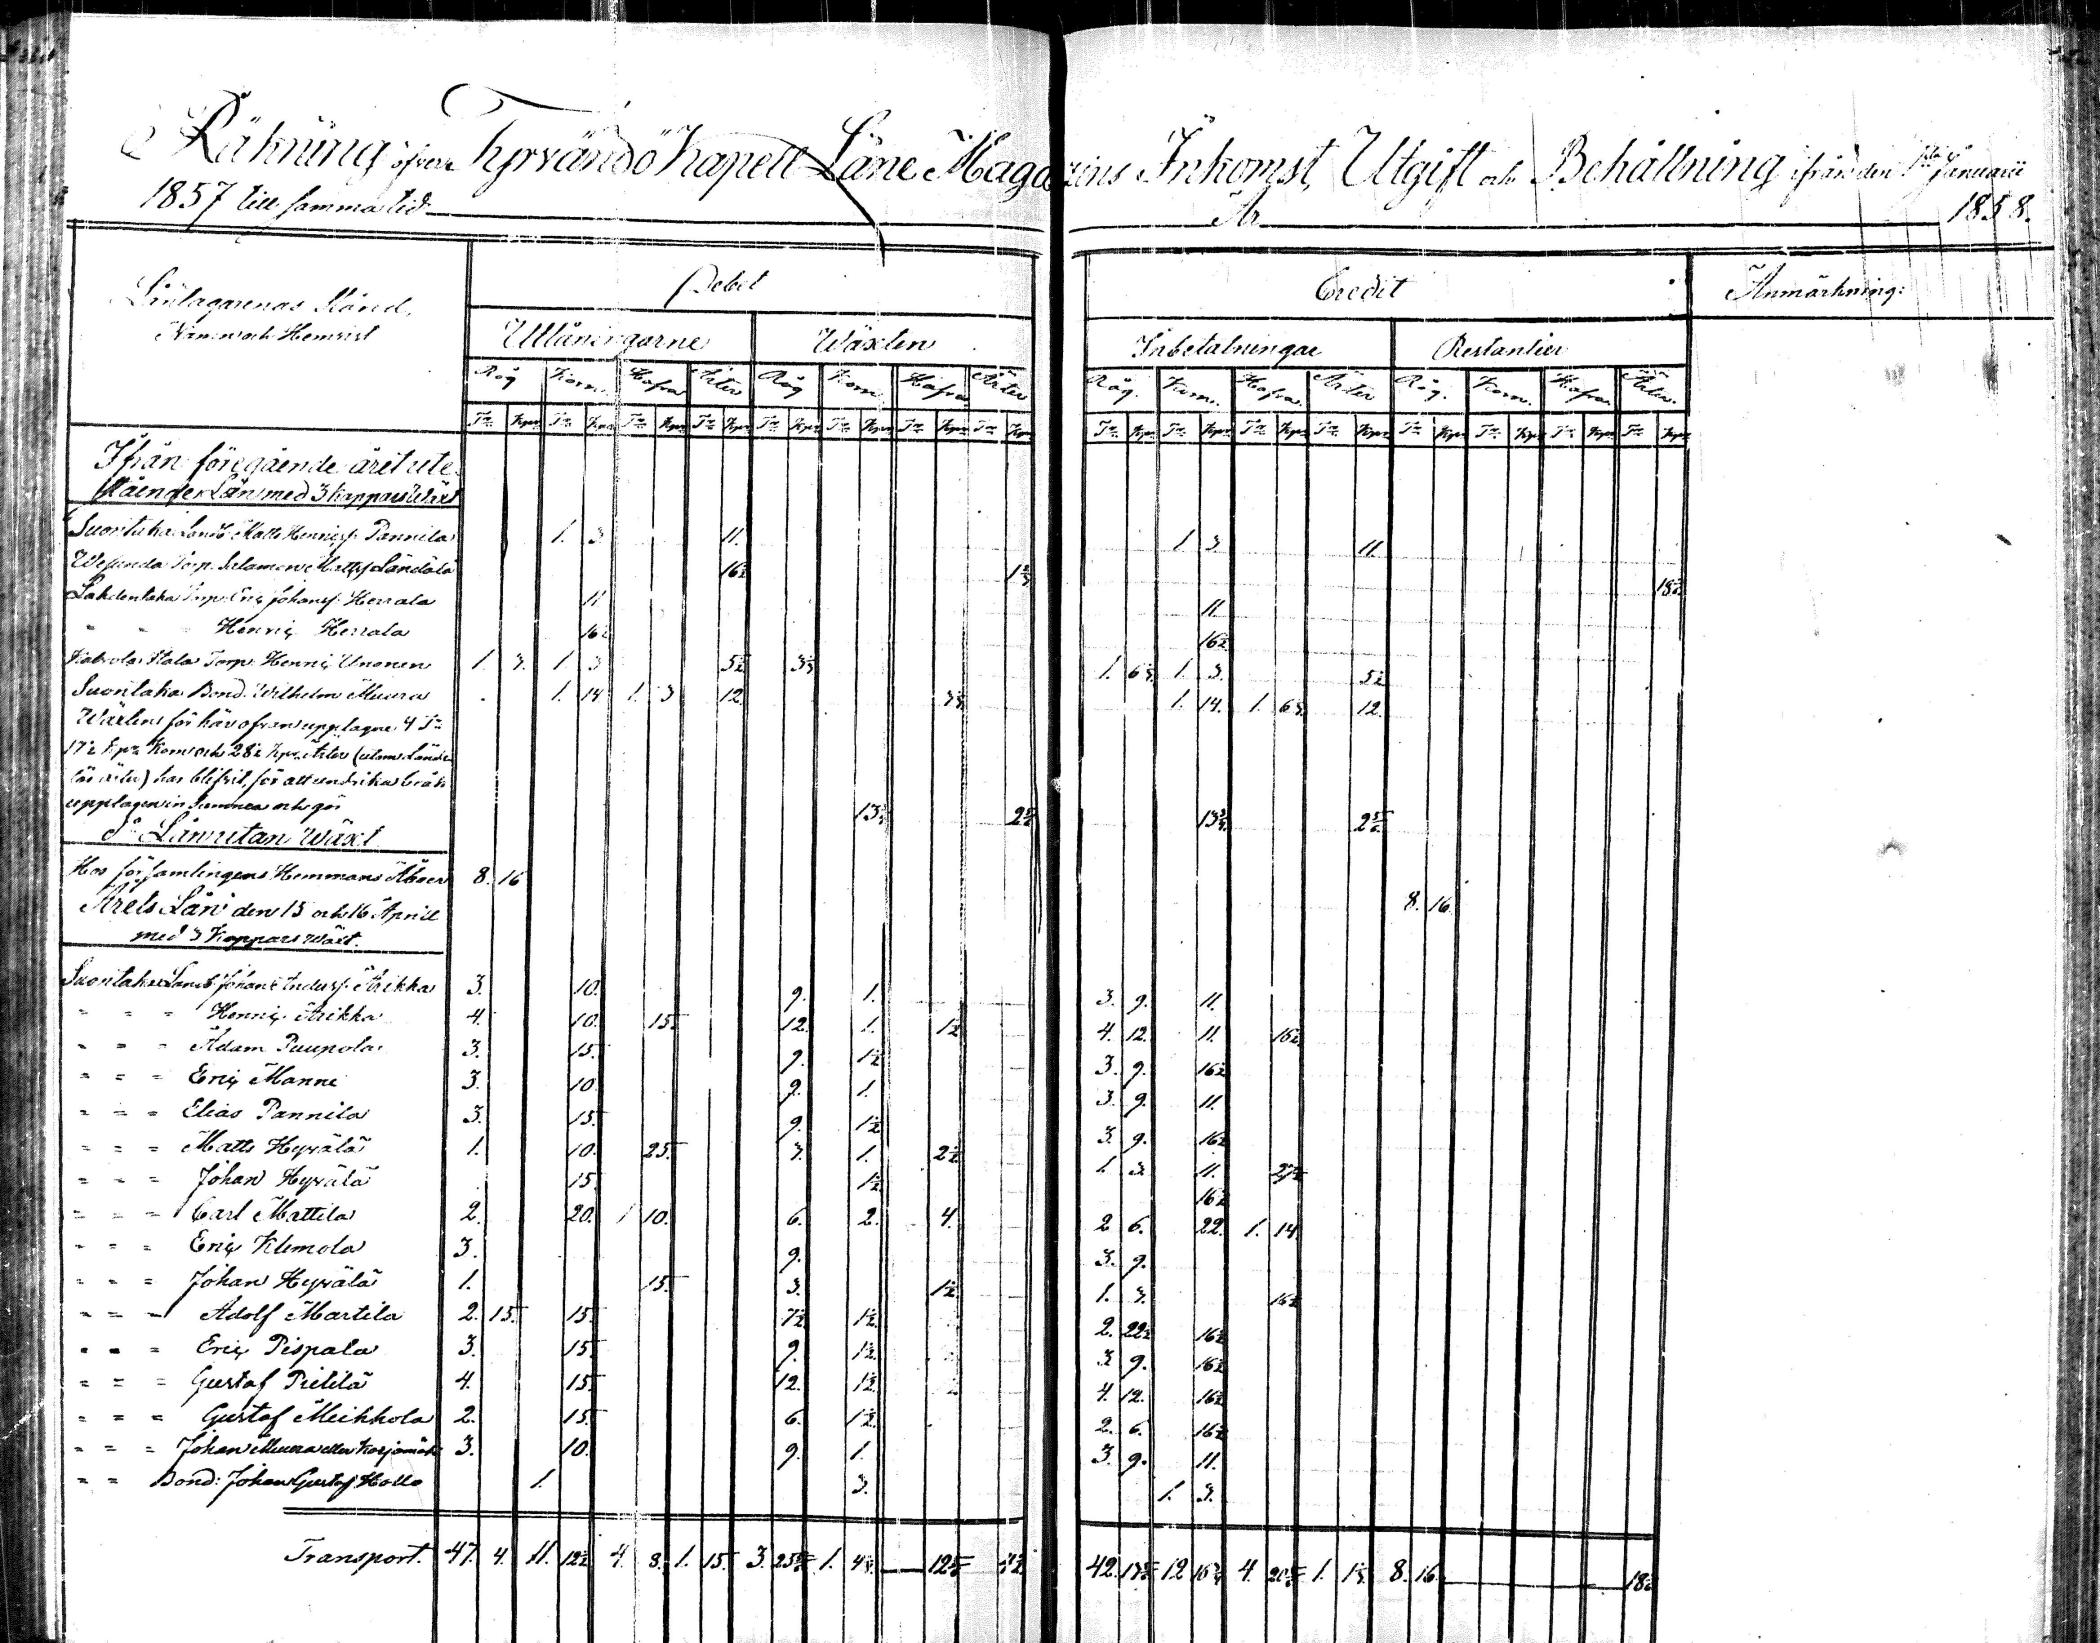 Räkning öfver Tyrvändö Kapell Låne Magazins Inkomst, Utgift och Behållning ifrån den 1sta Januarii
1857 till samma tid År 1858.
Låntagarenas Stånd, Namn och Hemvist | Debet | Credit | Anmärkning:
Utlåningarne | Wäxten | Inbetalningar | Restantier
Råg | Korn | Hafra | Ärter | Råg | Korn | Hafra | Ärter | Råg. | Korn. | Hafra. | Ärter | Råg. | Korn. | Hafra. | Ärter.
Tr | Kpr | Tr | Kpr | Tr | Kpr | Tr | Kpr | Tr | Kpr | Tr | Kpr | Tr | Kpr | Tr | Kpr | Tr | Kpr | Tr | Kpr | Tr | Kpr | Tr | Kpr | Tr | Kpr | Tr | Kpr | Tr | Kpr | Tr | Kpr
Ifrån föregående året ute-
stående Lån med 3 kappars Wäxt
Suontaka Landb. Matts Henriçs. Pannila 1. 3 11. 1 3. 11.
Wesunda Torp. Salamon Mattss 16½
Lahdentaka Torp. Eriç Johanss. Herrala 11 11.
" " Henriç Herrala 16½ 16½
Torp. Henriç Unonen 1. 3. 1. 3 5½ 1. 1. 3. 5½
Suontaka Bond. Wilhelm Muura 1. 14 1. 3 12. 1. 14. 1. 12.
Wäxten för här ofvan upptagne 4 Tr
17½ Kpr Korn och 28½ Kpr Ärter (utom
har blifvit, för att undvika bråk
upptagen in Summa och gör
do Lån utan Wäxt
Hos församlingens Hemmans Åboer 8. 16 8. 16.
Årets Lån den 15 och 16 April
med 3 Kappars Wäxt.
Suontaka Landb. Johan Anderss. Arikka 3. 10. 9. 1. 3. 9. 11.
" " " Henriç Arikka 4. 10. 15. 12. 1. 1½ 4. 12. 11. 16½
" " " Adam Puupola 3. 15. 9. 1½ 3. 9. 16½
" " " Eriç Manne 3. 10 9. 1. 3. 9. 11.
" " " Elias Pannila 3. 15. 9. 1½ 3. 9. 16½
" " " Matts Hyrälä 1. 10. 25. 3. 1. 2½ 1. 3. 11. 27½
" " " Johan Hyrälä 15. 1½ 16½
" " " Carl Mattila 2. 20. 1 10. 6. 2. 4. 2 6. 22. 1. 14.
" " " Eriç Klemola 3. 9. 3. 9.
" " " Johan Hyrälä 1. 15. 3. 1½ 1. 3. 16½
" " " Adolf Martila 2. 15. 15. 7½ 1½ 2. 22½ 16½
" " " Eriç Pispala 3. 15. 9. 1½ 3 9. 16½
" " " Gustaf Pietilä 4. 15. 12. 1½ 4. 12. 16½
" " " Gustaf Meikkola 2. 15. 6. 1½ 2. 6. 16½
" " " Johan Muura eller 3. 10. 9. 1. 3. 9. 11.
" " Bond: Johan Gustaf Hollo 1. 3. 1. 3.
Transport. 47. 4. 11. 12½ 4. 8. 1. 15. 3. 1. 42. 12 4. 1. 8. 16.